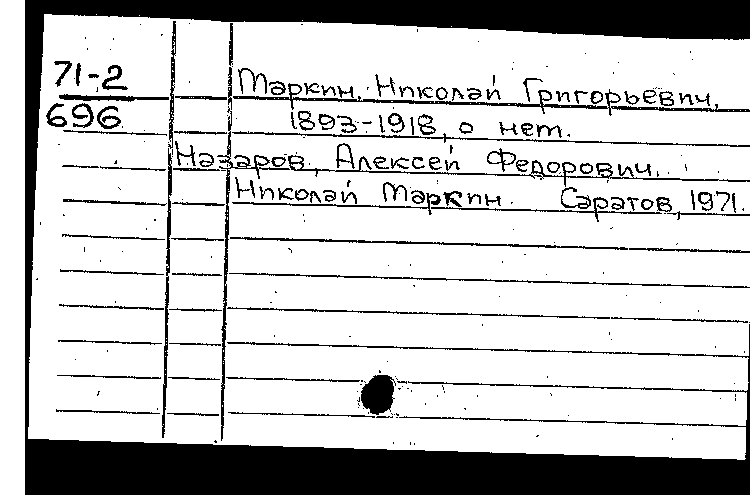 71-2
696
Маркин, Николай Григорьевич,
1893-1918, о нет.
Назаров, Алексей Федорович.
Николай Маркин. Саратов, 1971.